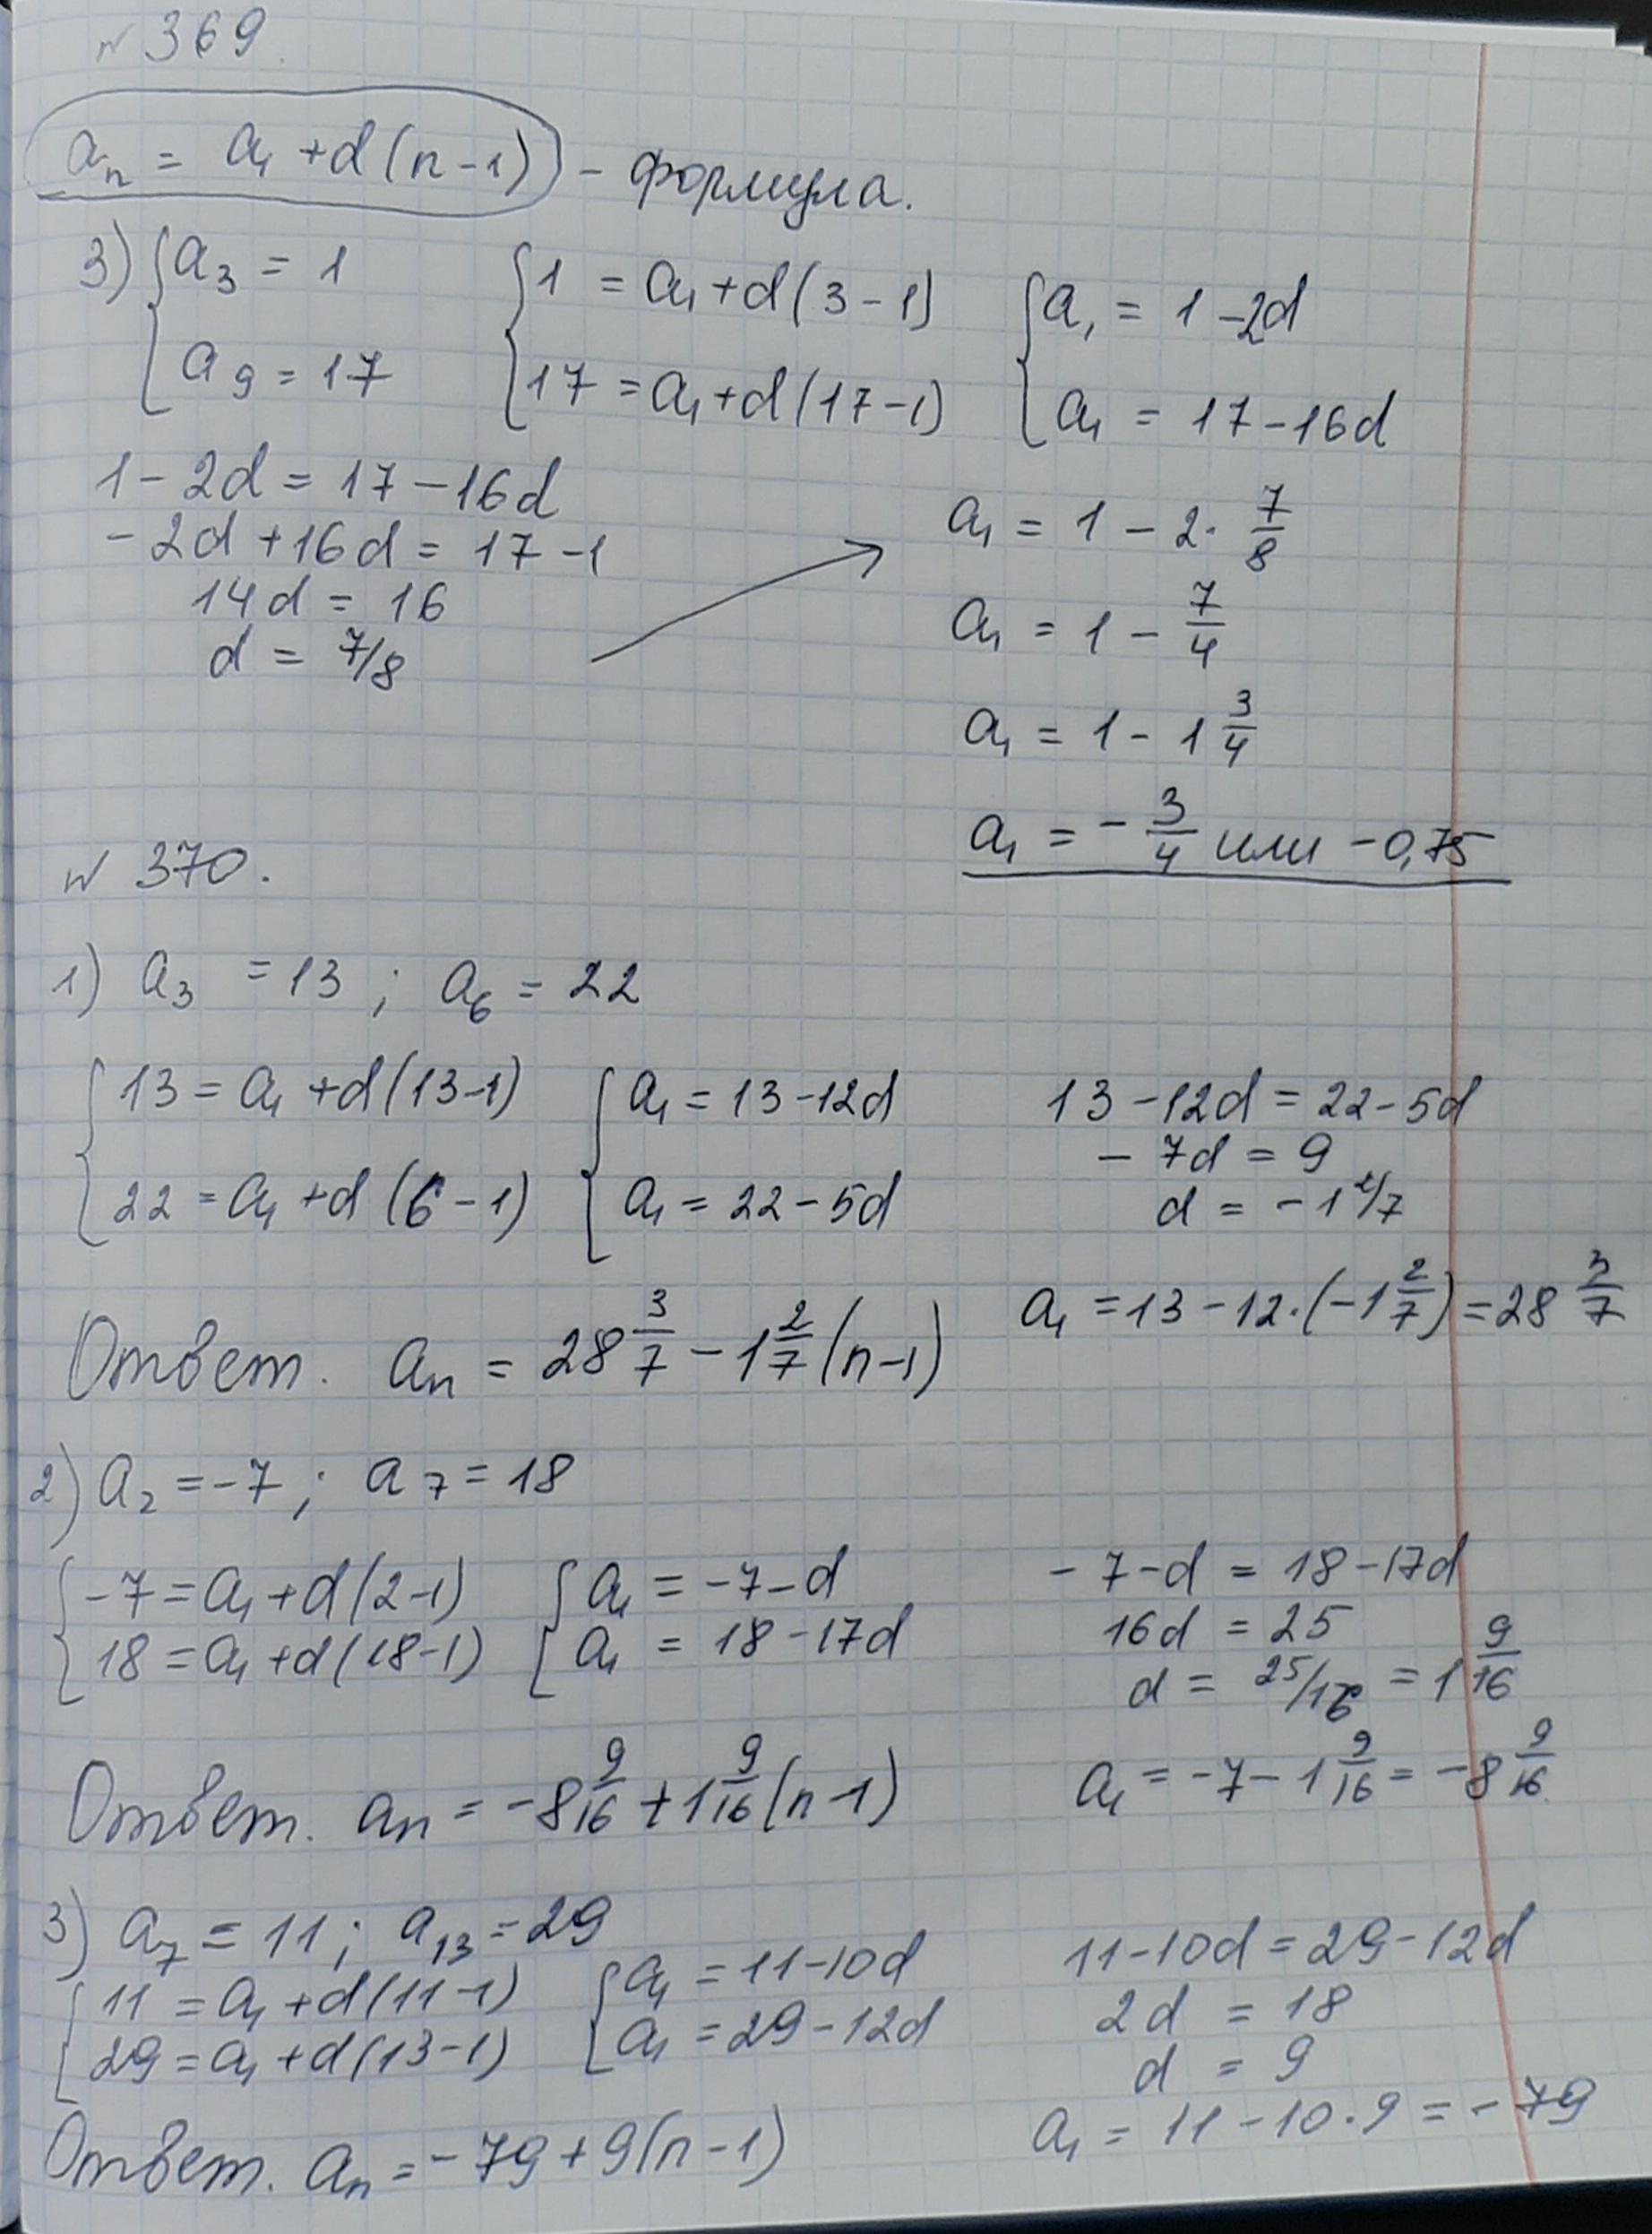 № 369.
aₙ = a₁ + d(n-1) - формула.
3) { a₃ = 1 { 1 = a₁ + d(3-1) { a₁ = 1 - 2d
a₉ = 17 17 = a₁ + d(17-1) a₁ = 17 - 16d
1 - 2d = 17 - 16d
-2d + 16d = 17 - 1
14d = 16
d = 7/8
a₁ = 1 - 2 · 7/8
a₁ = 1 - 7/4
a₁ = 1 - 1 3/4
a₁ = - 3/4 или -0,75
№ 370.
1) a₃ = 13 ; a₆ = 22
{ 13 = a₁ + d(13-1) { a₁ = 13 - 12d
22 = a₁ + d(6-1) a₁ = 22 - 5d
13 - 12d = 22 - 5d
- 7d = 9
d = -1 2/7
a₁ = 13 - 12 · (-1 2/7) = 28 3/7
Ответ. aₙ = 28 3/7 - 1 2/7 (n-1)
2) a₂ = -7 ; a₇ = 18
{ -7 = a₁ + d(2-1) { a₁ = -7 - d
18 = a₁ + d(18-1) a₁ = 18 - 17d
- 7 - d = 18 - 17d
16d = 25
d = 25/16 = 1 9/16
a₁ = -7 - 1 9/16 = -8 9/16
Ответ. aₙ = -8 9/16 + 1 9/16 (n-1)
3) a₇ = 11 ; a₁₃ = 29
{ 11 = a₁ + d(11-1) { a₁ = 11 - 10d
29 = a₁ + d(13-1) a₁ = 29 - 12d
11 - 10d = 29 - 12d
2d = 18
d = 9
a₁ = 11 - 10 · 9 = -79
Ответ. aₙ = -79 + 9(n-1)